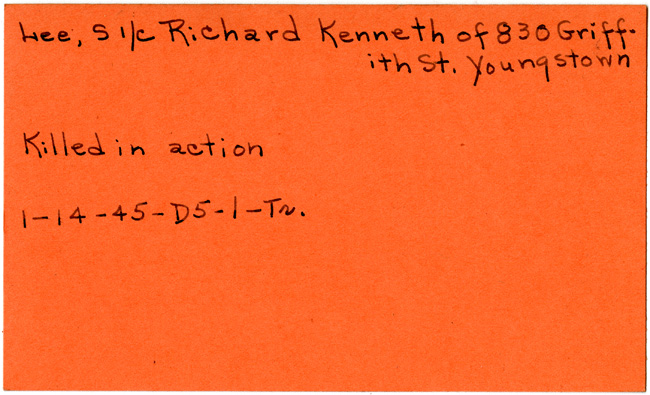 Lee, S 1/c Richard Kenneth of 830 Griff-
ith St. Youngstown
Killed in action
1-14-45-D5-1-Tr.